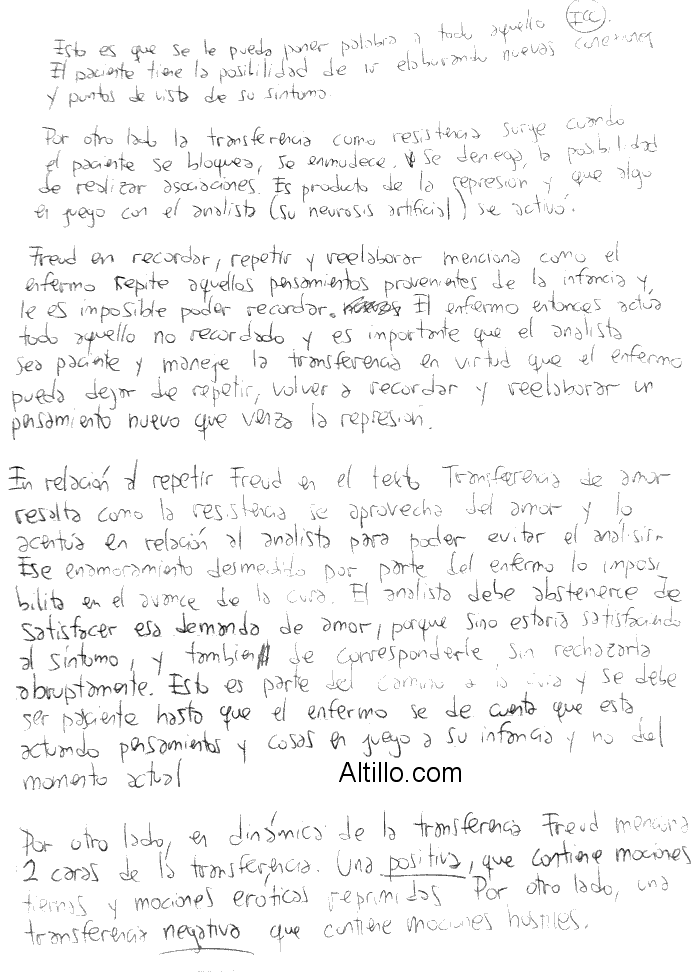 Esto es que se le pueda poner palabra a todo aquello ICC
El paciente tiene la posibilidad de ir elaborando nuevas conexiones
y puntos de vista de su síntoma.
Por otro lado la transferencia como resistencia surge cuando
el paciente se bloquea, se enmudece. Se deniega la posibilidad
de realizar asociaciones. Es producto de la represión y que algo
en juego con el analista (su neurosis artificial) se activó.
Freud en recordar, repetir y reelaborar menciona como el
enfermo repite aquellos pensamientos provenientes de la infancia y
le es imposible poder recordar. El enfermo entonces actúa
todo aquello no recordado y es importante que el analista
sea paciente y maneje la transferencia en virtud que el enfermo
pueda dejar de repetir, volver a recordar y reelaborar un
pensamiento nuevo que venza la represión.
En relación al repetir Freud en el texto Transferencia de amor
resalta como la resistencia se aprovecha del amor y lo
acentúa en relación al analista para poder evitar el análisis.
Ese enamoramiento desmedido por parte del enfermo lo imposi
bilita en el avance de la cura. El analista debe abstenerce de
satisfacer esa demanda de amor, porque sino estaría satisfaciendo
al síntoma, y también de corresponderle, sin rechazarla
abruptamente. Esto es parte del camino a la cura y se debe
ser paciente hasta que el enfermo se de cuenta que está
actuando pensamientos y cosas en juego a su infancia y no del
momento actual
Altillo.com
Por otro lado, en dinámica de la transferencia Freud menciona
2 caras de la transferencia. Una positiva, que contiene mociones
tiernas y mociones eróticas reprimidas Por otro lado, una
transferencia negativa que contiene mociones hostiles.